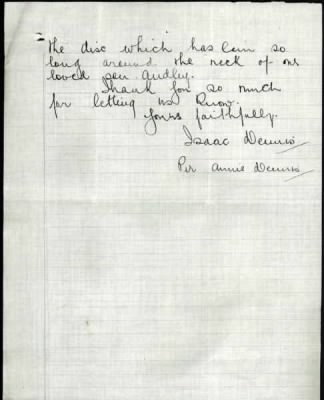 the disc which has been so
long around the neck of our
loved son Audley.
Thank you so much
for letting us know.
Yours faithfully.
Isaac Dennis
Per Annie Dennis